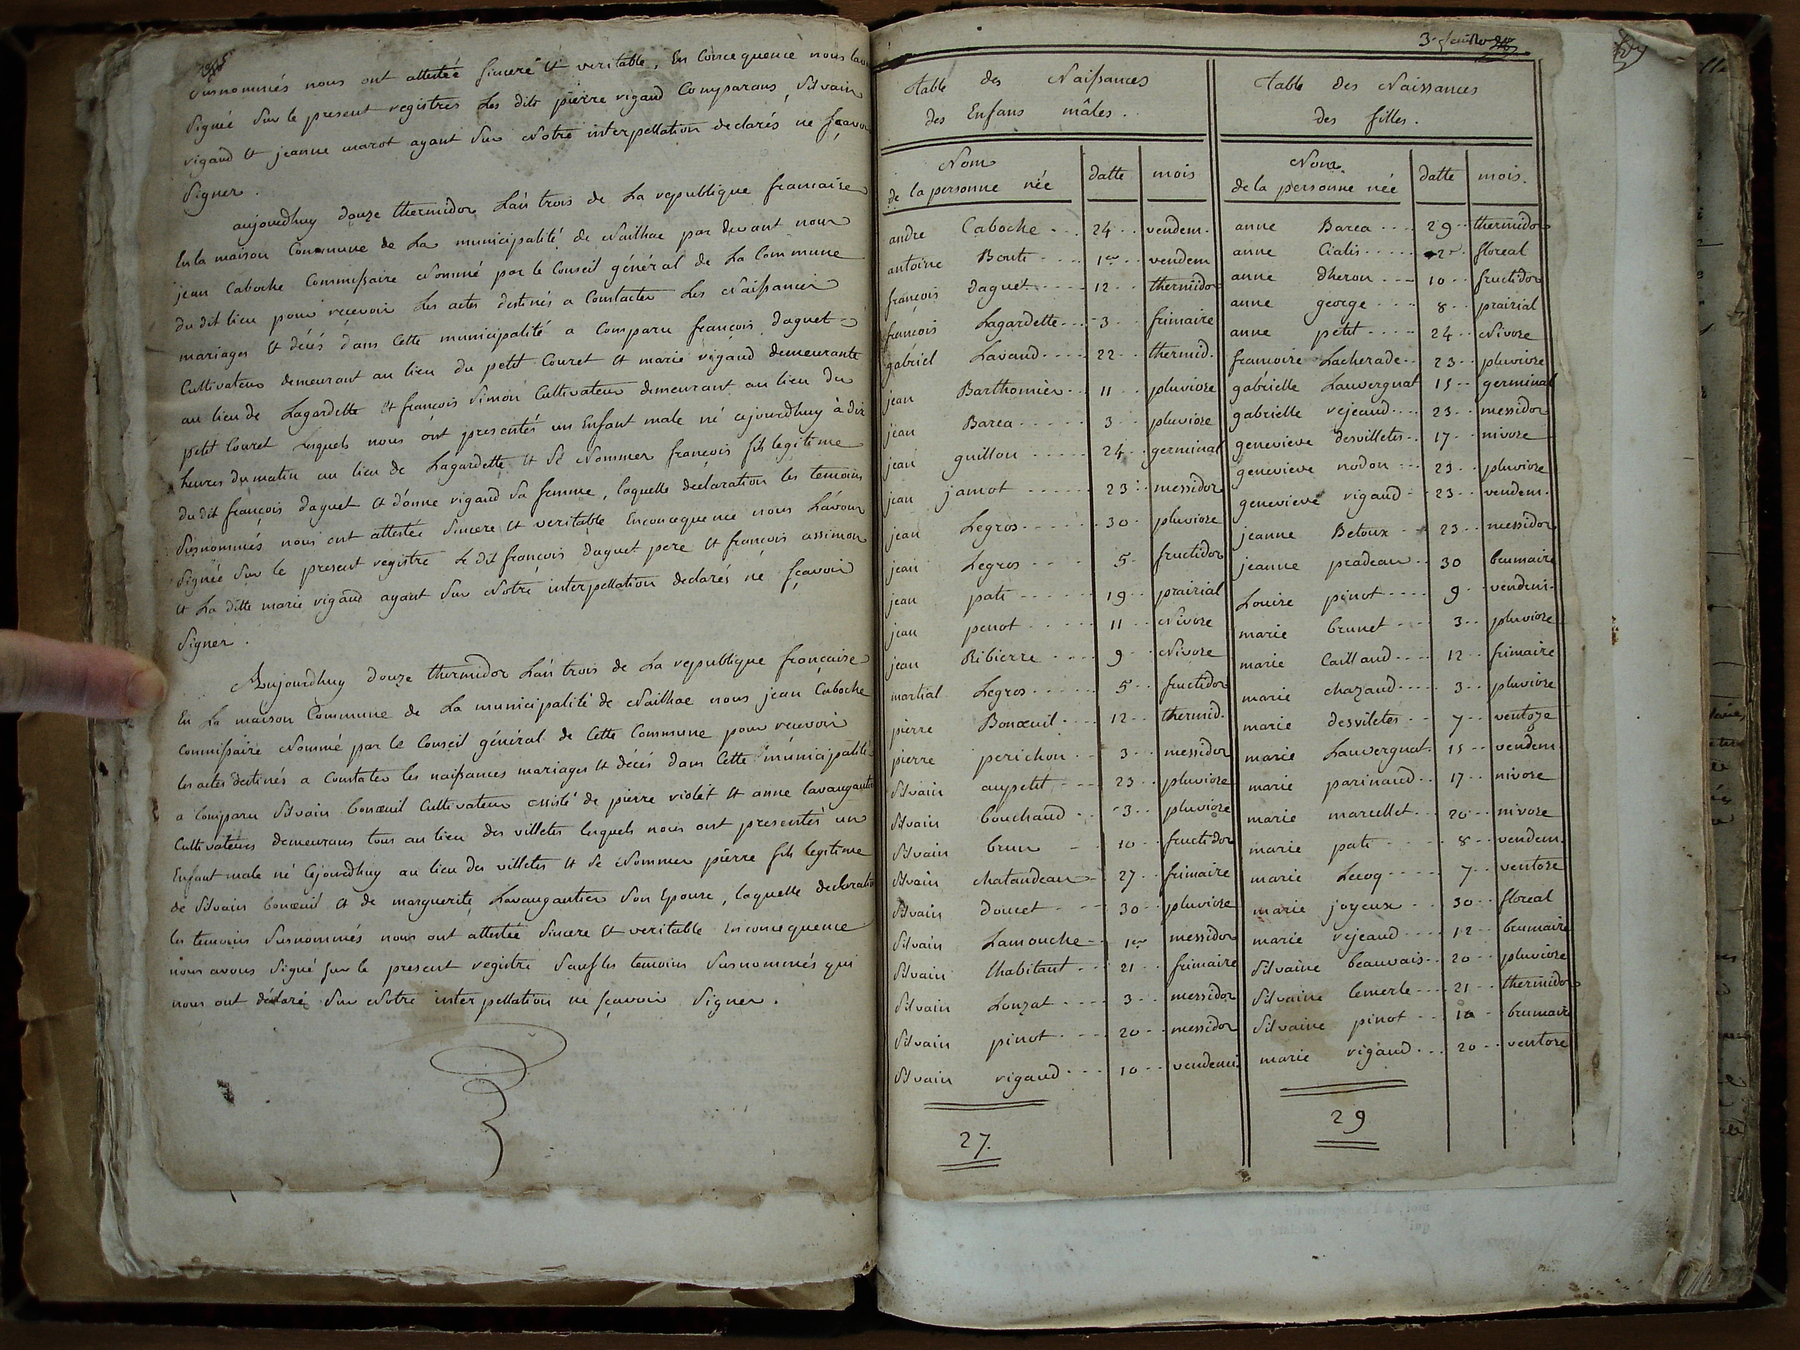 susnommés nous ont attestée sincere et veritable, En Concequence nous l'avons
signée sur le present registres les dits pierre rigaud Comparans, silvain
rigaud et jeanne marot ayant sur notre interpellation declarés ne sçavoir
signer.
aujourdhuy douze thermidor l'an trois de la republique francaise
En la maison Commune de la municipalité de Nailhac par devant nous
jean Caboche Commissaire Nommé par le Conseil général de la Commune
du dit lieu pour recevoir les actes destinés a Constater les Naissances
mariages et décés dans Cette municipalité a Comparu françois daguet
Cultivateur demeurant au lieu du petit Couret et marie rigaud demeurante
au lieu de Lagardette et françois simon Cultivateur demeurant au lieu du
petit Couret lesquels nous ont presentés un Enfant male né cejourdhuy à dix
heures du matin au lieu de Lagardette et se Nommer françois fils legitime
du dit françois daguet et d'anne rigaud sa femme, laquelle declaration les temoins
susnommés nous ont attestée sincere et veritable Enconcequence nous l'avons
signée sur le present registre le dit françois daguet pere et françois assimon
et la ditte marie rigaud ayant sur Notre interpellation declarés ne sçavoir
signer.
Aujourdhuy douze thermidor l'an trois de la republique française
En la maison Commune de la municipalité de Nailhac nous jean Caboche
Commissaire Nommé par le Conseil général de Cette Commune pour recevoir
les actes destinés a Constater les naissances mariages et décés dans Cette municipalité
a Comparu silvain bonœuil Cultivateur assisté de pierre violet et anne lavaugautier
Cultivateurs demeurans tous au lieu des villetes lesquels nous ont presentés un
Enfant male né Cejourdhuy au lieu des villetes et se Nommer pierre fils legitime
de silvain bonœuil et de marguerite Lavaugautier son Epouse, laquelle declaration
les temoins susnommés nous ont attestée sincere et veritable Enconcequence
nous avons signé sur le present registre sauf les temoins susnommés qui
nous ont déclaré sur Notre interpellation ne sçavoir signer.
Table des Naissances
des Enfans mâles.
Nom
de la personne née datte mois
andre Caboche 24 vendem.
antoine Bonti 1er vendem
françois daguet 12 thermidor
françois Lagardette 3 frimaire
gabriel Lavaud 22 thermid.
jean Barthomier 11 pluviose
jean Barca 3 pluviose
jean guillon 24 germinal
jean jamot 23 messidor
jean Legros 30 pluviose
jean Legros 5 fructidor
jean pati 19 prairial
jean penot 11 Nivose
jean Ribierre 9 Nivose
martial Legros 5 fructidor
pierre Bonœuil 12 thermid.
pierre perichon 3 messidor
silvain aupetit 23 pluviose
silvain bouchaud 3 pluviose
silvain brun 10 fructidor
silvain chataudeau 27 frimaire
silvain doucet 30 pluviose
silvain Lamouche 1er messidor
silvain lhabitant 21 frimaire
silvain Louzat 3 messidor
silvain pinot 20 messidor
silvain rigaud 10 vendemi
27.
Table des Naissances
des filles.
Nom
de la personne née datte mois.
anne Barca 29 thermidor
anne Cialis 2 floreal
anne dheron 10 fructidor
anne george 8 prairial
anne petit 24 Nivose
francoise Lacherade 23 pluviose
gabrielle Lauvergnat 15 germinal
gabrielle vejeaud 23 messidor
genevieve desvilletes 17 nivose
genevieve nodon 23 pluviose
genevieve rigaud 23 vendem.
jeanne Betoux 23 messidor
jeanne pradeau 30 brumaire
Louise pinot 9 vendem.
marie brunet 3 pluviose
marie Caillaud 12 frimaire
marie chazaud 3 pluviose
marie desviletes 7 ventoze
marie Lauvergnat 15 vendem
marie parinaud 17 nivose
marie marcellet 20 nivose
marie pati 8 vendem.
marie Lecoq 7 ventose
marie joyeux 30 floreal
marie vejeaud 12 brumaire
silvaine beauvais 20 pluviose
silvaine lemerle 21 thermidor
silvaine pinot 10 brumaire
marie rigaud 20 ventose
29